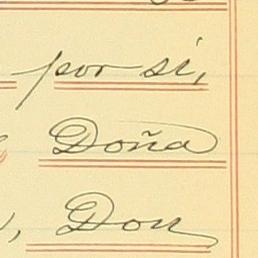 por sí,
Doña
, Don